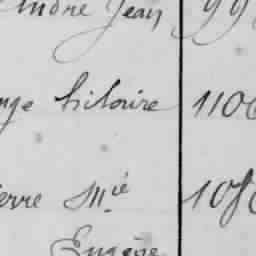 André Jean 99
nge hiloire 1100
ierre M.ie 108
Eugène